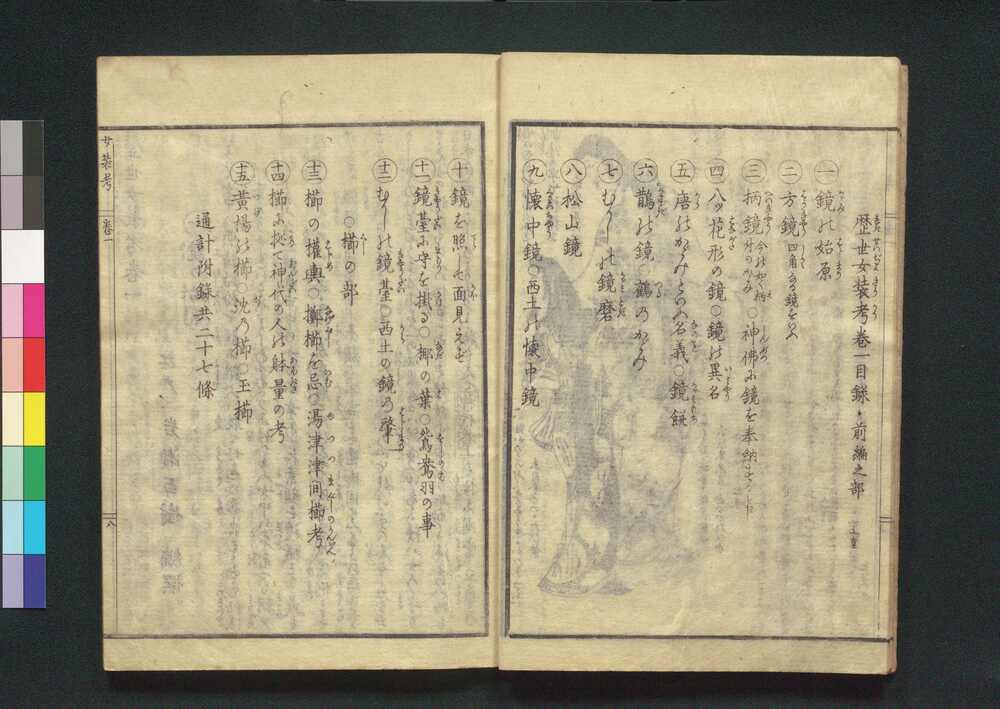 歴世女装考巻一目録 前編之部
㊀鏡の始原
㊁方鏡 四角なる鏡をいふ
㊂柄鏡 今の如く柄付のかゞみ ○神佛に鏡を奉納せし事
㊃八ッ花形の鏡○鏡の異名
㊄唐のかゞみといふ名義○鏡餅
㊅鵲の鏡○鶴のかゞみ
㊆むかしの鏡磨
㊇松山鏡
㊈懐中鏡○西土の懐中鏡
㊉鏡を照して面見えず
十一 鏡臺に守を掛る○椰の葉○鴛鴦羽の事
十二 むかしの鏡臺○西土の鏡の肇
○櫛の部
十三 櫛の權輿○擲櫛を忌○湯津津間櫛考
十四 櫛に就て神代の人の躰量の考
十五 黄楊の櫛○沈の櫛○玉櫛
通計附録共二十七條
女装考
巻一
八